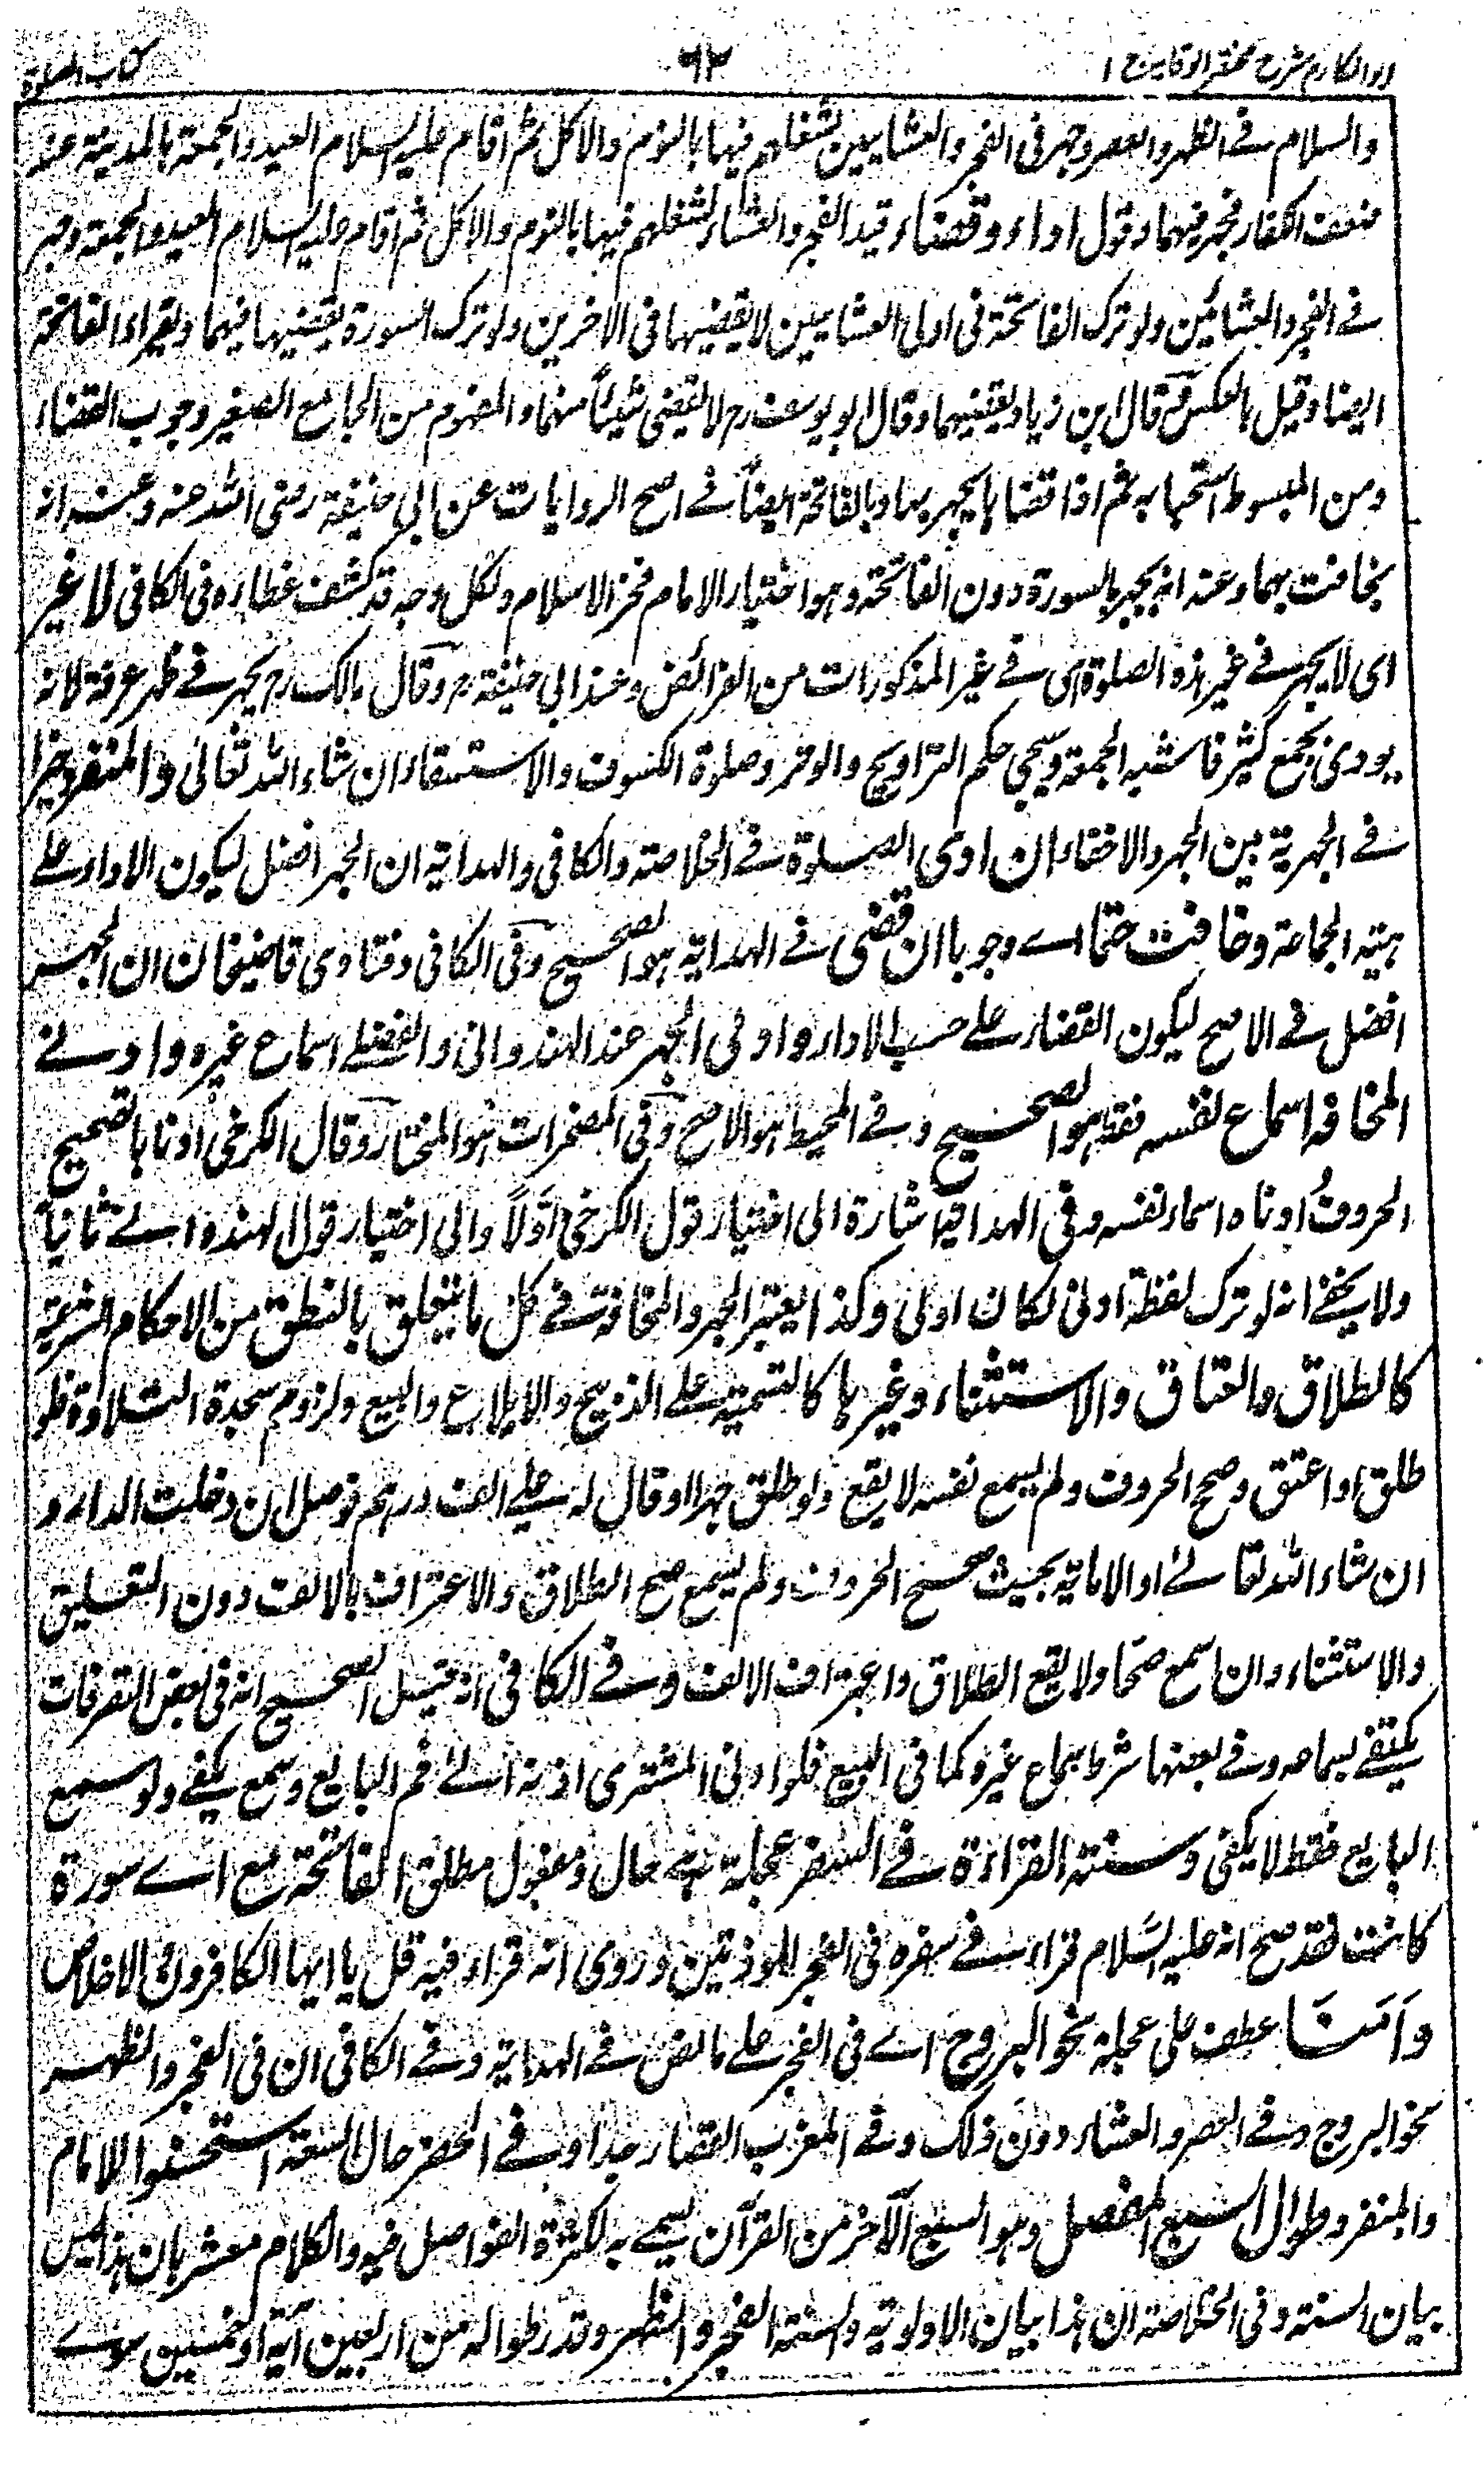 ابو المکارم شرح مختصر الوقایہ ج ۱
٦٢
کتاب الصلوة
والسلام فے الظهر والعصر وجهر فی الفجر والعشایین لشغلهم فیها بالنوم والاکل ثم اقام علیه السلام العید والجمعة بالمدینة عند
ضعف الکفار فجهر فیهما وقول اداء وقضاء قید الفجر والعشاء لشغلهم فیها بالنوم والاکل ثم اقام علیه السلام العید والجمعة وجهر
فے الفجر والعشائین ولو ترک الفاتحة فی اولی العشایین لا یقضیها فی الاخرین ولو ترک السورة یقضیها فیهما ویقراء الفاتحة
ایضا وقیل بالعکس وقال ابن زیاد یقضیهما وقال ابو یوسف رح لا یقضی شیئاً منهما والمفهوم من الجامع الصغیر وجوب القضاء
ومن المبسوط استحبابه ثم اذا قضاها یجهر بها وبالفاتحة ایضاً فے اصح الروایات عن ابی حنیفة رضی الله عنه وعنه انه
یخافت بهما وعنه انه یجهر بالسورة دون الفاتحة وهو اختیار الامام فخر الاسلام ولکل وجه قد کشف غطاره فی الکافی لا غیر
ای لا یجهر فے غیر هذه الصلوة ای فے غیر المذکورات من الفرائض وعند ابی حنیفة رح وقال مالک رح یجهر فے ظهر عرفة لانه
یودی بجمع کثیر فاشبه الجمعة وسیجی حکم التراویح والوتر وصلوة الکسوف والاستسقاء ان شاء الله تعالی والمنفرد خیر
فے الجهریة بین الجهر والاخفاء ان ادی الصلوة فے الخلاصته والکافی والهدایة ان الجهر افضل لیکون الاداء علے
هیئة الجماعة وخافت حتما اے وجوبا ان قضی فے الهدایة هو الصحیح وفی الکافی وفتاوی قاضیخان ان الجهر
افضل فے الاصح لیکون القضاء علے حسب الاداء وادنی الجهر عند الهندوانی والفضلے اسماع غیره وادنے
المخافة اسماع نفسه فقط هو الصحیح وفے المحیط هو الاصح وفی المضمرات هو المختار وقال الکرخی ادناها تصحیح
الحروف وادناه اسماء نفسه وفی الهدایة اشارة الی اختیار قول الکرخی اولاً والی اختیار قول الهندوانے ثانیاً
ولا یخفے انه لو ترک لفظة ادنی لکان اولی وکذا یعتبر الجهر والمخافة فے کل ما یتعلق بالنطق من الاحکام الشرعیة
کالطلاق والعتاق والاستثناء وغیرها کالتسمیة علے الذبیح والایلاء والبیع ولزوم سجدة التلاوة فلو
طلق او اعتق وصح الحروف ولم یسمع نفسه لا یقع ولو طلق جهرا او قال له علے الف درهم فوصل ان دخلت الدار و
ان شاء الله تعالے او الامایة بحیث صحح الحروف ولم یسمع صح الطلاق والاعتراف بالالف دون التعلیق
والاستثناء وان اسمع صحا ولا یقع الطلاق واعتراف الالف وفے الکافی انه قیل الصحیح انه فی بعض التصرفات
یکتفے بسماعه وفے بعضها شرط سماع غیره کما فی البیع فلو ادنی المشتری اذنه الے فم البایع وسمع یکفے ولو سمع
البایع فقط لا یکفی وسنته القراءة فے السفر عجلة هے حال ومفعول مطلق الفاتحة مع اے سورة
کانت فقد صح انه علیه السلام قراء فے سفره فی الفجر المعوذتین وروی انه قراء فیه قل یا ایها الکافرون والاخلاص
وَاَمَنَا عطف علی عجلة نحو البروج اے فی الفجر علے ما نص فے الهدایة وفے الکافی ان فی الفجر والظهر
نحو البروج وفے العصر والعشاء دون ذلک وفے المغرب القصار جدا وفے الحضر حال السعة استحسنوا للامام
والمنفرد طوال السبع المفصل وهو السبع الآخر من القرآن یسمے به لکثرة الفواصل فیه والکلام مشعر بان هذا لیس
بیان السنة وفی الخلاصة ان هذا بیان الاولویة ولسنة الفجر والظهر وقدر طواله من اربعین آیة او خمسین سوے